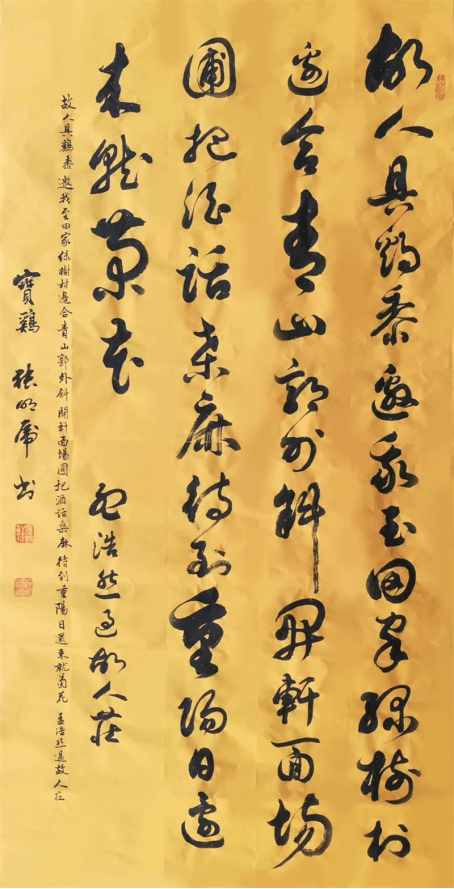 故人具鷄黍邀我至田家綠樹村
邊合青山郭外斜開軒面場
圃把酒話桑麻待到重陽日還
来就菊花 孟浩然過故人莊
故人具鷄黍邀我至田家綠樹村邊合青山郭外斜開軒面場圃把酒話桑麻待到重陽日還来就菊花 孟浩然過故人莊
寶鷄 張明虎書